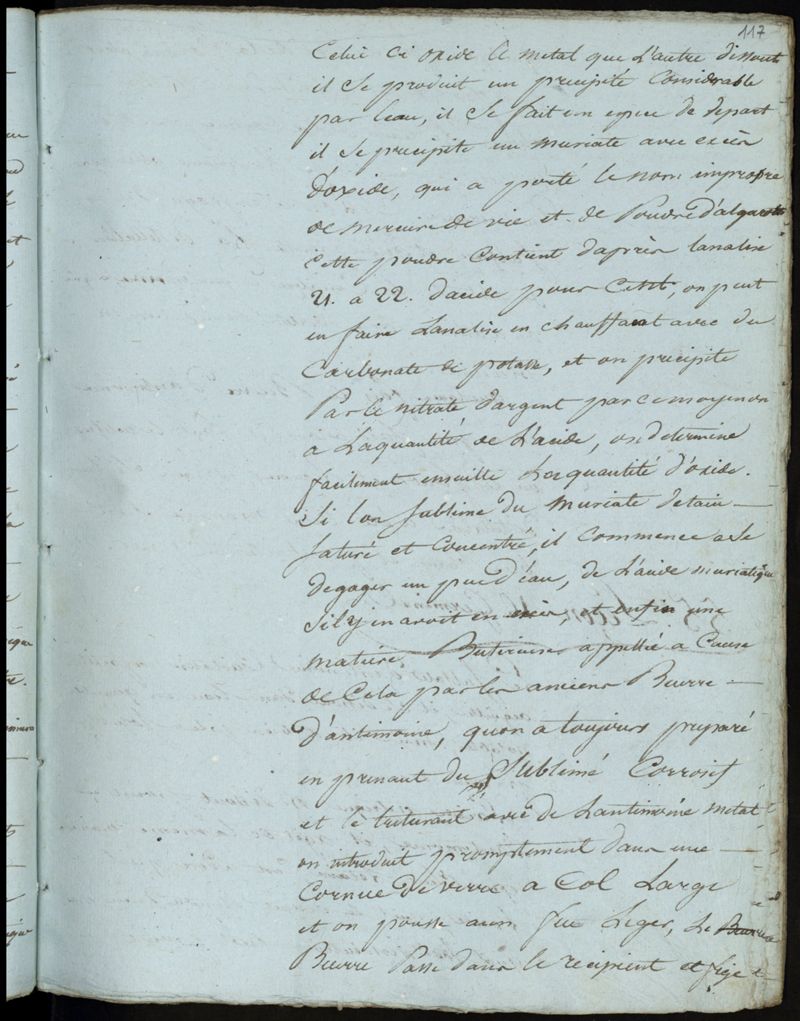 117
Celui ci oxide le metal que L'autre dissout
il se produit un precipité Considerable
par leau, il se fait un espece de depart
il se precipite un muriate avec excès
D'oxide, qui a porté le nom impropre
de mercure de vie et de Poudre d'algaroth
cette poudre Contient d'après lanalise
21. a 22. dacide pour Cent, on peut
en faire Lanalise en chauffant avec du
Carbonate de potasse, et on precipite
Par le nitrate d'argent par ce moyen on
a La quantité de L'acide, on determine
facilement ensuitte La quantité d'oxide.
Si lon sublime du muriate detain —
saturé et Concentré, il Commence a se
degager un peu d'eau, de L'acide muriatique
Sil y en avoit en excès, et enfin une
matiere Butireuse appellée a Cause
de Cela par les anciens Beurre —
D'antimoine, quon a toujours preparé
en prenant du Sublimé Corrosif
et le triturant avec de Lantimoine metal
on introduit promptement dans une —
Cornue de verre a Col Large
et on pousse au feu Leger, Le Beurre
Beurre Passe dans le recipient et fige